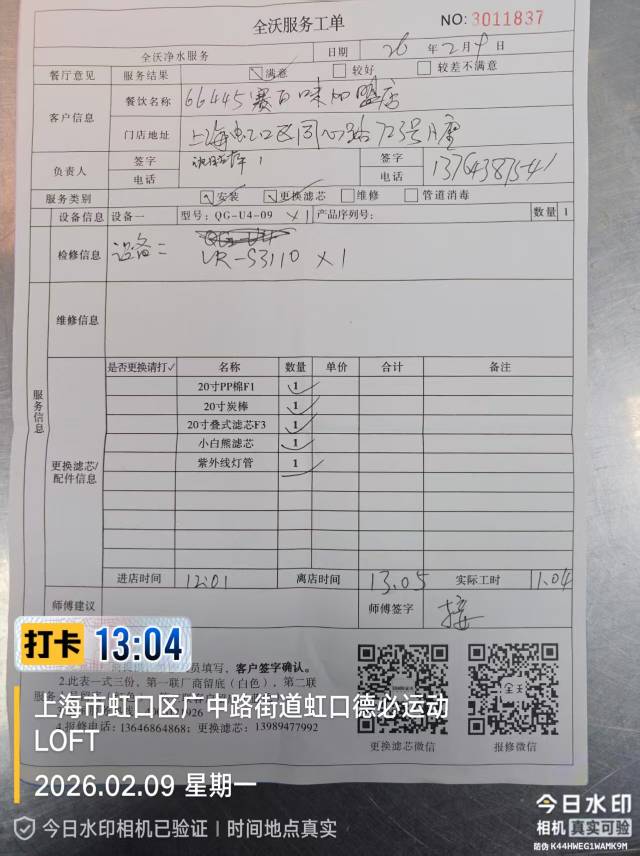 全沃服务工单
NO: 3011837
全沃净水服务 日期 26 年 2 月 9 日
餐厅意见 服务结果 ☑满意 □较好 □较差不满意
客户信息 餐饮名称 66445赛百味加盟店
门店地址 上海虹口区同心路723号
负责人 签字 签字
电话 电话 13764387541
服务类别 ☑安装 ☑更换滤芯 □维修 □管道消毒
设备信息 设备一 型号: QG-U4-09 ×1 产品序列号: 数量 1
检修信息 设备二 VR-S3110 ×1
维修信息
服务信息
是否更换请打✓ 名称 数量 单价 合计 备注
20寸PP棉F1 1
20寸炭棒 1
20寸叠式滤芯F3 1
小白熊滤芯 1
紫外线灯管 1
更换滤芯/配件信息
进店时间 12:01 离店时间 13:05 实际工时 1.04
师傅建议 师傅签字
员填写，客户签字确认。
2.此表一式三份，第一联厂商留底（白色），第二联
4.报修电话：13646864868；更换滤芯：13989477992
更换滤芯微信 报修微信
全沃
打卡 13:04
上海市虹口区广中路街道虹口德必运动
LOFT
2026.02.09 星期一
今日水印相机已验证 时间地点真实
今日水印
相机 真实可验
防伪 K44HWEG1WAMK9M